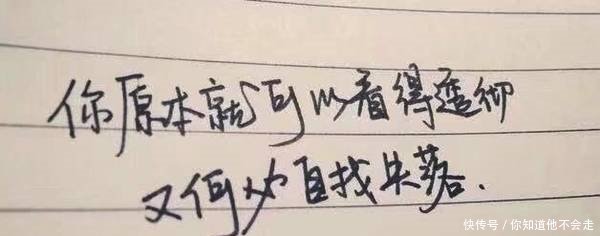 你原本就可以看得透彻
又何必自找失落.
快传号/你知道他不会走